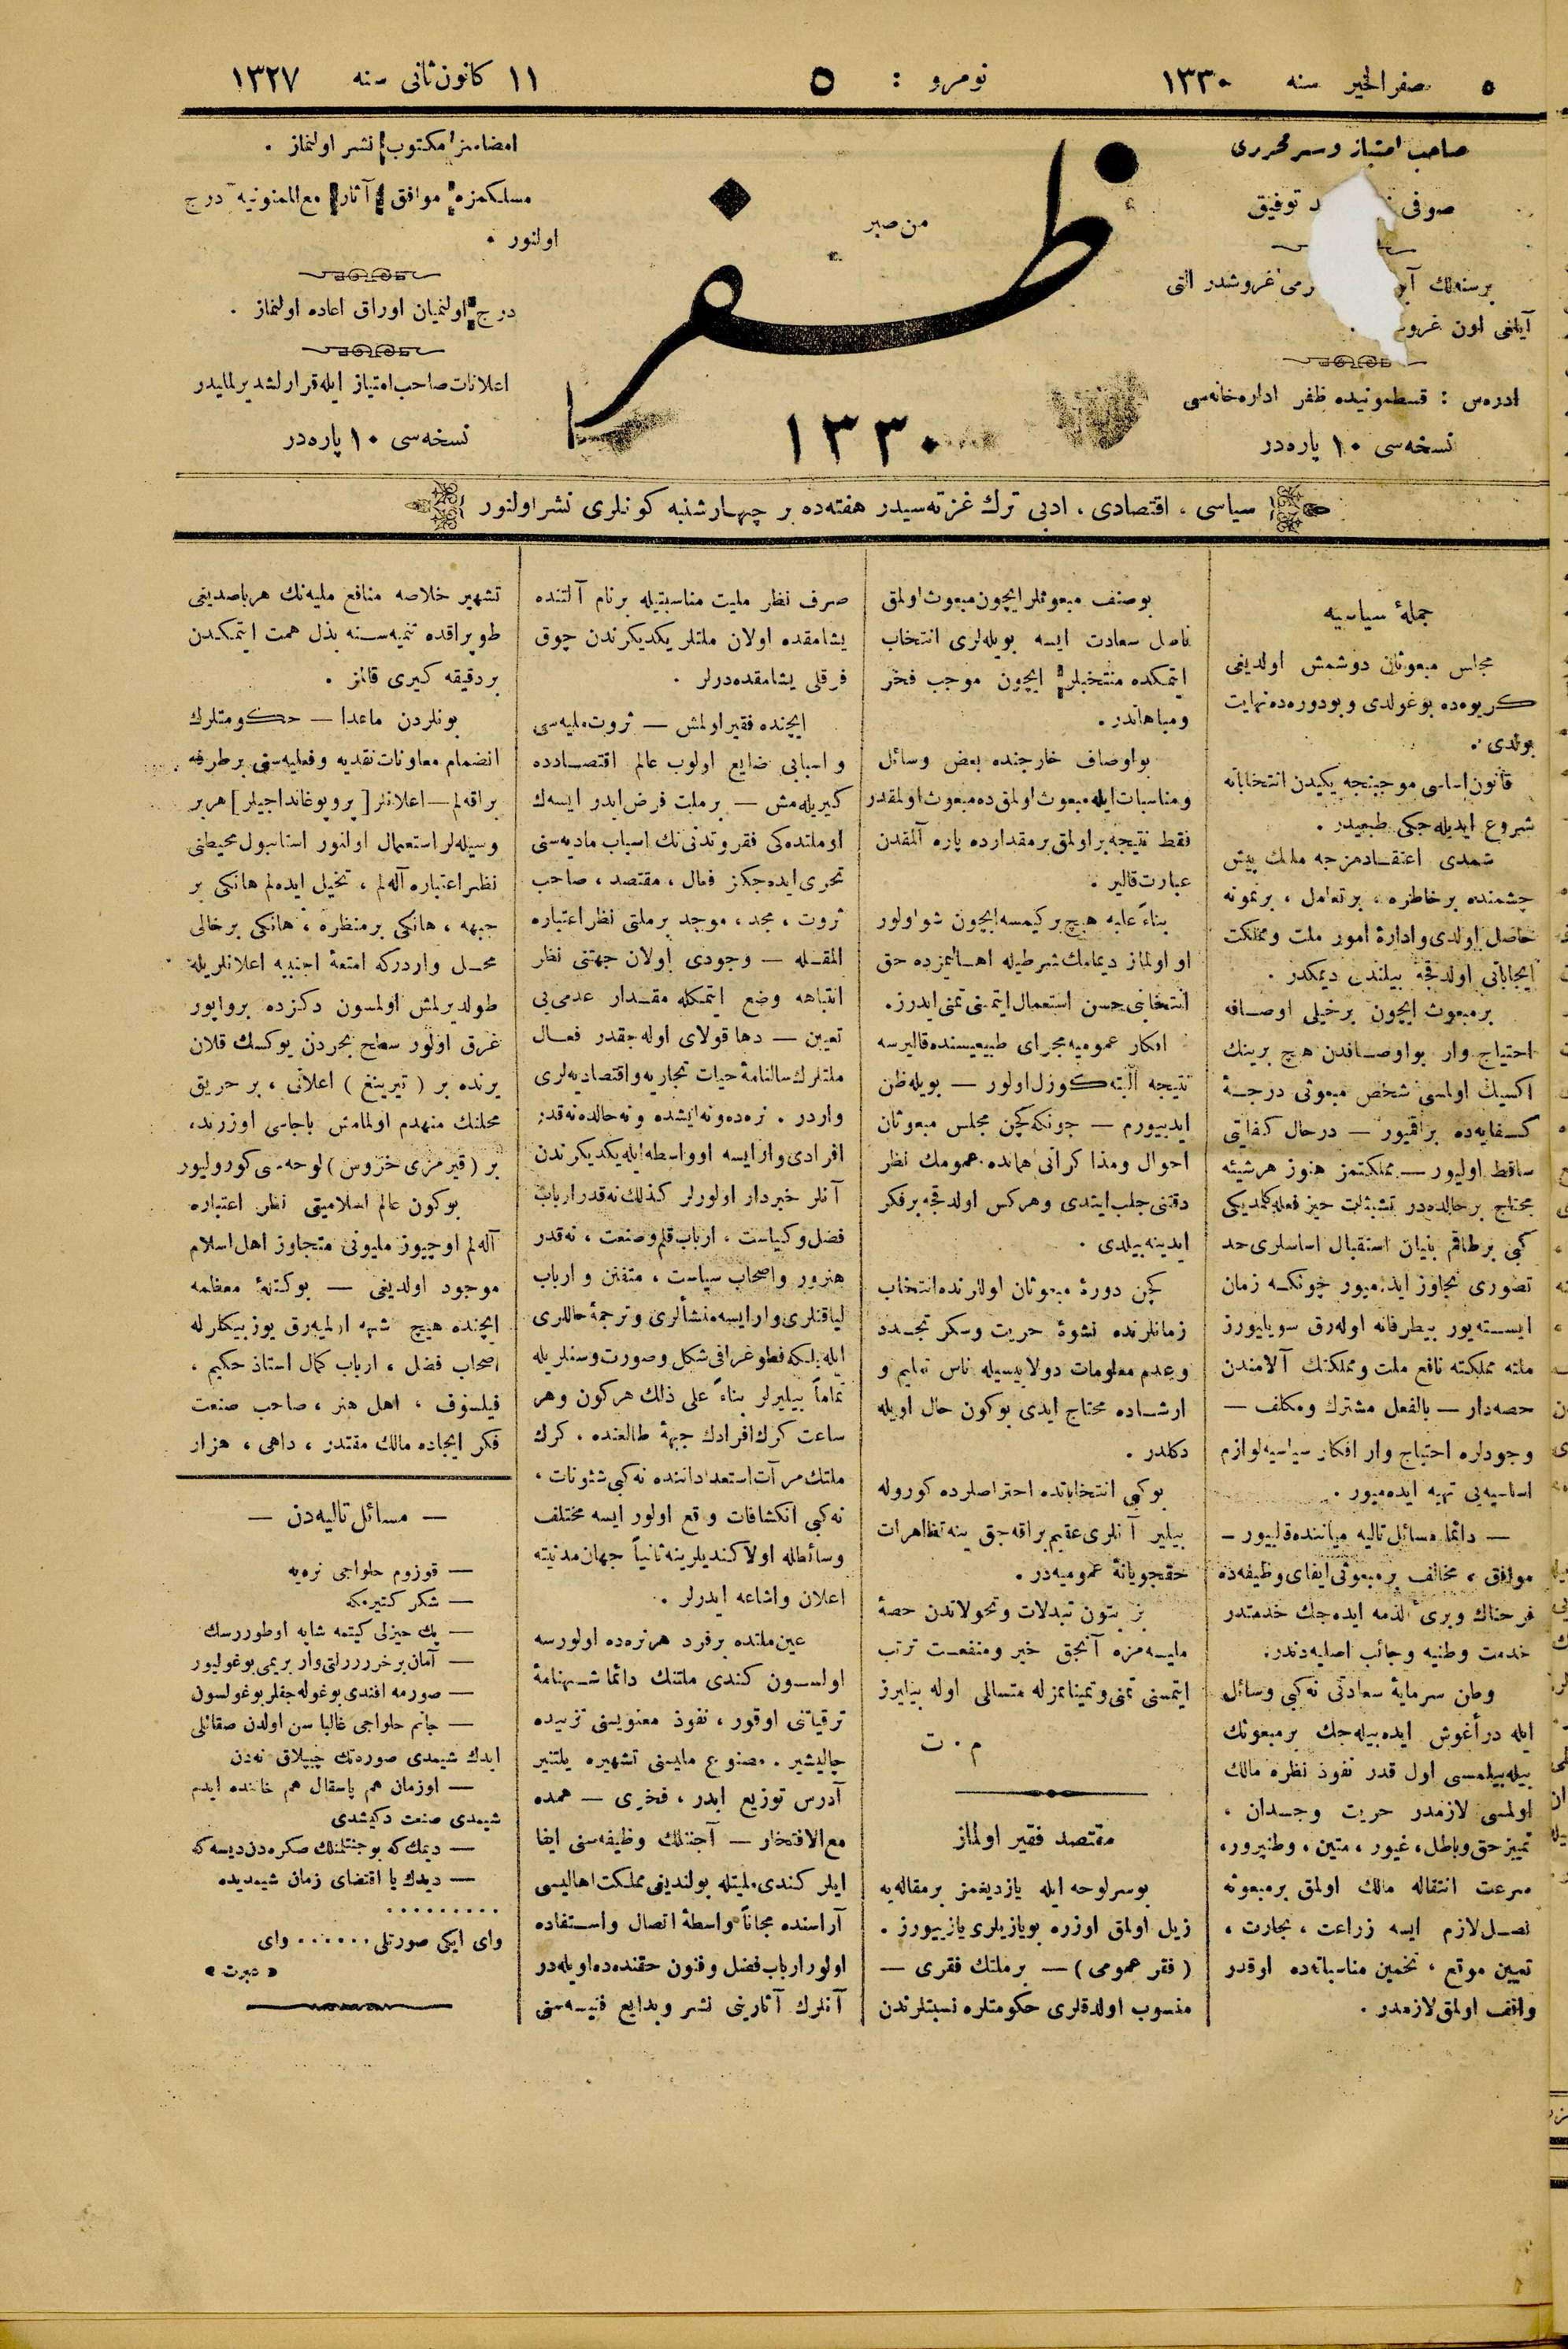 ٥ صفر الخير سنه ١٣٣٠
نومرو : ٥
١١ كانون ثانی سنه ١٣٢٧
صاحب امتياز و سر محرری
صوفی توفيق
برسنه‌لك غروشدر التی
آيلغی اون
ادره‌س : قسطمونيده ظفر اداره‌خانه‌سی
نسخه‌سی ١٠ پاره‌در
من صبر
ظفر
١٣٣٠
امضاسز مكتوب نشر اولنماز .
مسلكمزه موافق آثار مع الممنونيه درج
اولنور .
درج اولنميان اوراق اعاده اولنماز .
اعلانات صاحب امتياز ايله قرارلشديرلمليدر
نسخه‌سی ١٠ پاره‌در
سياسی ، اقتصادی ، ادبی ترك غزته‌سيدر هفته‌ده بر چهارشنبه كونلری نشر اولنور
جملهٔ سياسيه
مجلس مبعوثان دوشمش اولديغی
كريوه‌ده بوغولدی و بو دوره‌ده نهايت
بولدی .
قانون اساسی موجبنجه يكيدن انتخاباته
شروع ايديله‌جكی طبيعيدر .
شمدی اعتقادمزجه ملك پيش
چشمنده بر خاطره ، بر تعامل ، بر نمونه
حاصل اولدی و ادارهٔ امور ملت و مملكت
ايجاباتی اولدقجه بيلندی ديمكدر .
بر مبعوث ايچون بر خيلی اوصافه
احتياج وار بو اوصافدن هيچ برينك
اكسيك اولمسی شخص مبعوثی درجهٔ
كفايه‌ده براقميور — درحال كفايتی
ساقط اوليور — مملكتمز هنوز هر شيئه
محتاج بر حالده‌در تشبثات حيز فعله كلمديكی
كبی بر طاقم بنيان استقبال اساسلری حد
تصوری تجاوز ايده‌ميور چونكه زمان
ايسته‌يور بيطرفانه اوله‌رق سويليورز
ملته مملكته نافع ملت و مملكتك آلامندن
حصه‌دار — بالفعل مشترك و مكلف —
وجودلره احتياج وار افكار سياسيه لوازم
اساسيه‌يی تهيه ايده‌ميور .
— دائما مسائل تاليه مياننده قاليور —
موافق ، مخالف بر مبعوثی ايفای وظيفه‌ده
فرحناك و بریٔ الذمه ايده‌جك خدمتدر
خدمت وطنيه و جائب اصليه‌دندر .
وطن سرمايهٔ سعادتی نه كبی وسائل
ايله درآغوش ايده‌بيله‌جك بر مبعوثك
بيله‌بيلمسی اول قدر نفوذ نظره مالك
اولمسی لازمدر حريت وجدان ،
تمييز حق و باطل ، غيور ، متين ، وطنپرور ،
سرعت انتقاله مالك اولمق بر مبعوثه
نصل لازم ايسه زراعت ، تجارت ،
تعيين موقع ، تخمين مناسباتده او قدر
واقف اولمق لازمدر .
بو صنف مبعوثلر ايچون مبعوث اولمق
ناصل سعادت ايسه بويله‌لری انتخاب
ايتمكده منتخبلر ايچون موجب فخر
و مباهاتدر .
بو اوصاف خارجنده بعض وسائل
و مناسبات ايله مبعوث اولمق ده مبعوث اولمقدر
فقط نتيجه بر اولمق بر مقدار ده پاره آلمقدن
عبارت قالير .
بناءً عليه هيچ بر كيمسه ايچون شو اولور
او اولماز ديمامك شرطيله اهاليمزده حق
انتخابی حسن استعمال ايتمنی تمنی ايدرز .
افكار عموميه مجرای طبيعيسنده قاليرسه
نتيجه البته كوزل اولور — بويله ظن
ايدييورم — چونكه كچن مجلس مبعوثان
احوال و مذاكراتی همانده عمومك نظر
دقتنی جلب ايتدی و هركس اولدقجه بر فكر
ايدينه‌بيلدی .
كچن دورهٔ مبعوثان اوللرنده انتخاب
زمانلرنده نشوهٔ حريت و سكر تجدد
و عدم معلومات دولاييسيله ناس تعليم و
ارشاده محتاج ايدی بوكون حال اويله
دكلدر .
بو كبی انتخاباتده احتراصلرده كوروله
بيلير آنلری عقيم براقه‌جق ينه تظاهرات
حقجويانهٔ عموميه‌در .
بز بتون تبدلات و تحولاتدن حصهٔ
مليه‌مزه آنجق خير و منفعت ترتب
ايتمسنی تمنی و تمنيامزله متسالی اوله بيليرز
م . ت
مقتصد فقير اولماز
بو سرلوحه ايله يازديغمز بر مقاله‌يه
ذيل اولمق اوزره بو يازيلری يازييورز .
( فقر عمومی ) — بر ملتك فقری —
منسوب اولدقلری حكومتلره نسبتلرندن
صرف نظر مليت مناسبتيله بر نام آلتنده
يشامقده اولان ملتلر يكديكرندن چوق
فرقلی يشامقده‌درلر .
ايچنده فقير اولمش — ثروت مليه‌سی
و اسبابی ضايع اولوب عالم اقتصادده
كيريله‌مش — بر ملت فرض ايدر ايسه‌ك
او ملتده‌كی فقر و تدنی‌نك اسباب ماديه‌سنی
تحری ايده‌جكز فعال ، مقتصد ، صاحب
ثروت ، مجد ، موجد بر ملتی نظر اعتباره
المقله — وجودی اولان جهتنی نظر
انتباهه وضع ايتمكله مقدار عدمی‌يی
تعيين — دها قولای اوله‌جقدر فعال
ملتلرك سالنامهٔ حيات تجاريه و اقتصاديه‌لری
واردر . نره‌ده و نه ايشده و نه حالده نه قدر
افرادی وار ايسه او واسطه ايله يكديكرندن
آنلر خبردار اولورلر كذلك نه قدر ارباب
فضل و كياست ، ارباب قلم و صنعت ، نه قدر
هنرور و اصحاب سياست ، متفنن و ارباب
لياقتلری وار ايسه منشألری و ترجمهٔ حاللری
ايله بلكه فطوغرافی شكل و صورت و سنلريله
تماماً بيليرلر بناءً علی ذلك هركون و هر
ساعت كرك افرادك جبههٔ طالعنده ، كرك
ملتك مرآت استعدادننده نه كبی شئونات ،
نه كبی انكشافات وقع اولور ايسه مختلف
وسائطله اولا كنديلرينه ثانياً جهان مدنيته
اعلان و اشاعه ايدرلر .
عين ملتده بر فرد هر نره‌ده اولورسه
اولسون كندی ملتنك دائما شهنامهٔ
ترقياتنی اوقور ، نفوذ معنويسنی تزييده
چاليشير . مصنوع مليسنی تشهيره يلتنير
آدرس توزيع ايدر ، فخری — همده
مع الافتخار — آجنتلك وظيفه‌سنی ايفا
ايلر كندی مليتله بولنديغی مملكت اهاليسی
آراسنده مجاناً واسطهٔ اتصال و استفاده
اولور ارباب فضل و فنون حقنده‌ده اويله‌در
آنلرك آثارينی نشر و بدايع فنيه‌سنی
تشهير خلاصه منافع مليه‌نك هر باصديغی
طوپراقده تنميه‌سنه بذل همت ايتمكدن
بر دقيقه كيری قالمز .
بونلردن ماعدا — حكومتلرك
انضمام معاونات نقديه و فعليه‌سنی بر طرفه
براقه‌لم — اعلانلر [ پروپوغانداجيلر ] هر بر
وسيله‌لر استعمال اولنور استانبول محيطنی
نظر اعتباره آله‌لم ، تخيل ايده‌لم هانكی بر
جبهه ، هانكی بر منظره ، هانكی بر خالی
محل واردركه امتعهٔ اجنبيه اعلانلريله
طولديرلمش اولمسون دكزده بر واپور
غرق اولور سطح بحردن يوكسك قلان
يرنده بر ( تيرينغ ) اعلانی ، بر حريق
محلنك منهدم اولمامش باجاسی اوزرنده ،
بر ( قيرمزی خروس ) لوحه‌سی كورولیور
بوكون عالم اسلاميتی نظر اعتباره
آله‌لم اوچيوز مليونی متجاوز اهل اسلام
موجود اولديغی — بو كتلهٔ معظمه
ايچنده هيچ شبهه ايلميه‌رق يوز بيكلرله
اصحاب فضل ، ارباب كمال استاذ حكيم ،
فيلسوف ، اهل هنر ، صاحب صنعت
فكر ايجاده مالك مقتدر ، داهی ، هزار
— مسائل تاليه‌دن —
— قوزوم حلواجی نره‌يه
— شكر كتيرمكه
— پك حيزلی كيتمه شايه اوطوررسك
— آمان بر خرررلتی وار بريمی بوغوليور
— صورمه افندی بوغوله‌جقلر بوغولسون
— جانم حلواجی غالبا سن اولدن صقاللی
ايدك شيمدی صورتك چيپلاق نه‌دن
— اوزمان هم پاسقال هم خاننده ايدم
شيمدی صنعت دكيشدی
— ديمك كه بو جنتلمنلك صكره‌دن ديسه‌ك
— ديدك يا اقتضای زمان شيمديده
. . . . . . . . .
وای ايكی صورتلی . . . . . . وای
« عبرت »